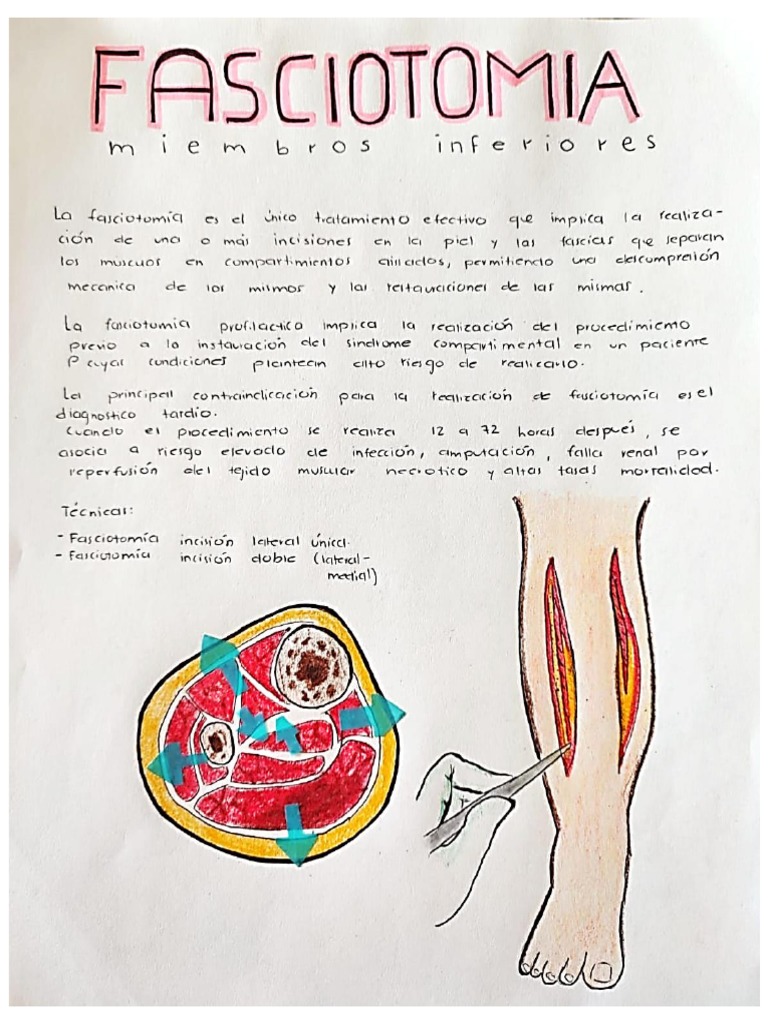 FASCIOTOMIA
miembros inferiores
La fasciotomía es el único tratamiento efectivo que implica la realiza-
ción de una o más incisiones en la piel y las fascias que separan
los muscuos en compartimientos aislados, permitiendo una descumpresión
mecanica de los mismos y las restauraciones de las mismas.
La fasciotomia profilactica implica la realización del procedimiento
previo a la instauración del sindrome compartimental en un paciente
P cuyas condiciones planteen alto riesgo de realicarlo.
La principal contraindicación para la realización de fasciotomía es el
diagnostico tardio.
Cuando el procedimiento se realiza 12 a 72 horas después, se
asocia a riesgo elevado de infección, amputación, falla renal por
reperfusión del tejido muscular necrotico y altas tasas mortalidad.
Técnicas:
- Fasciotomía incisión lateral única.
- Fasciotomia incisión doble (lateral-
medial)